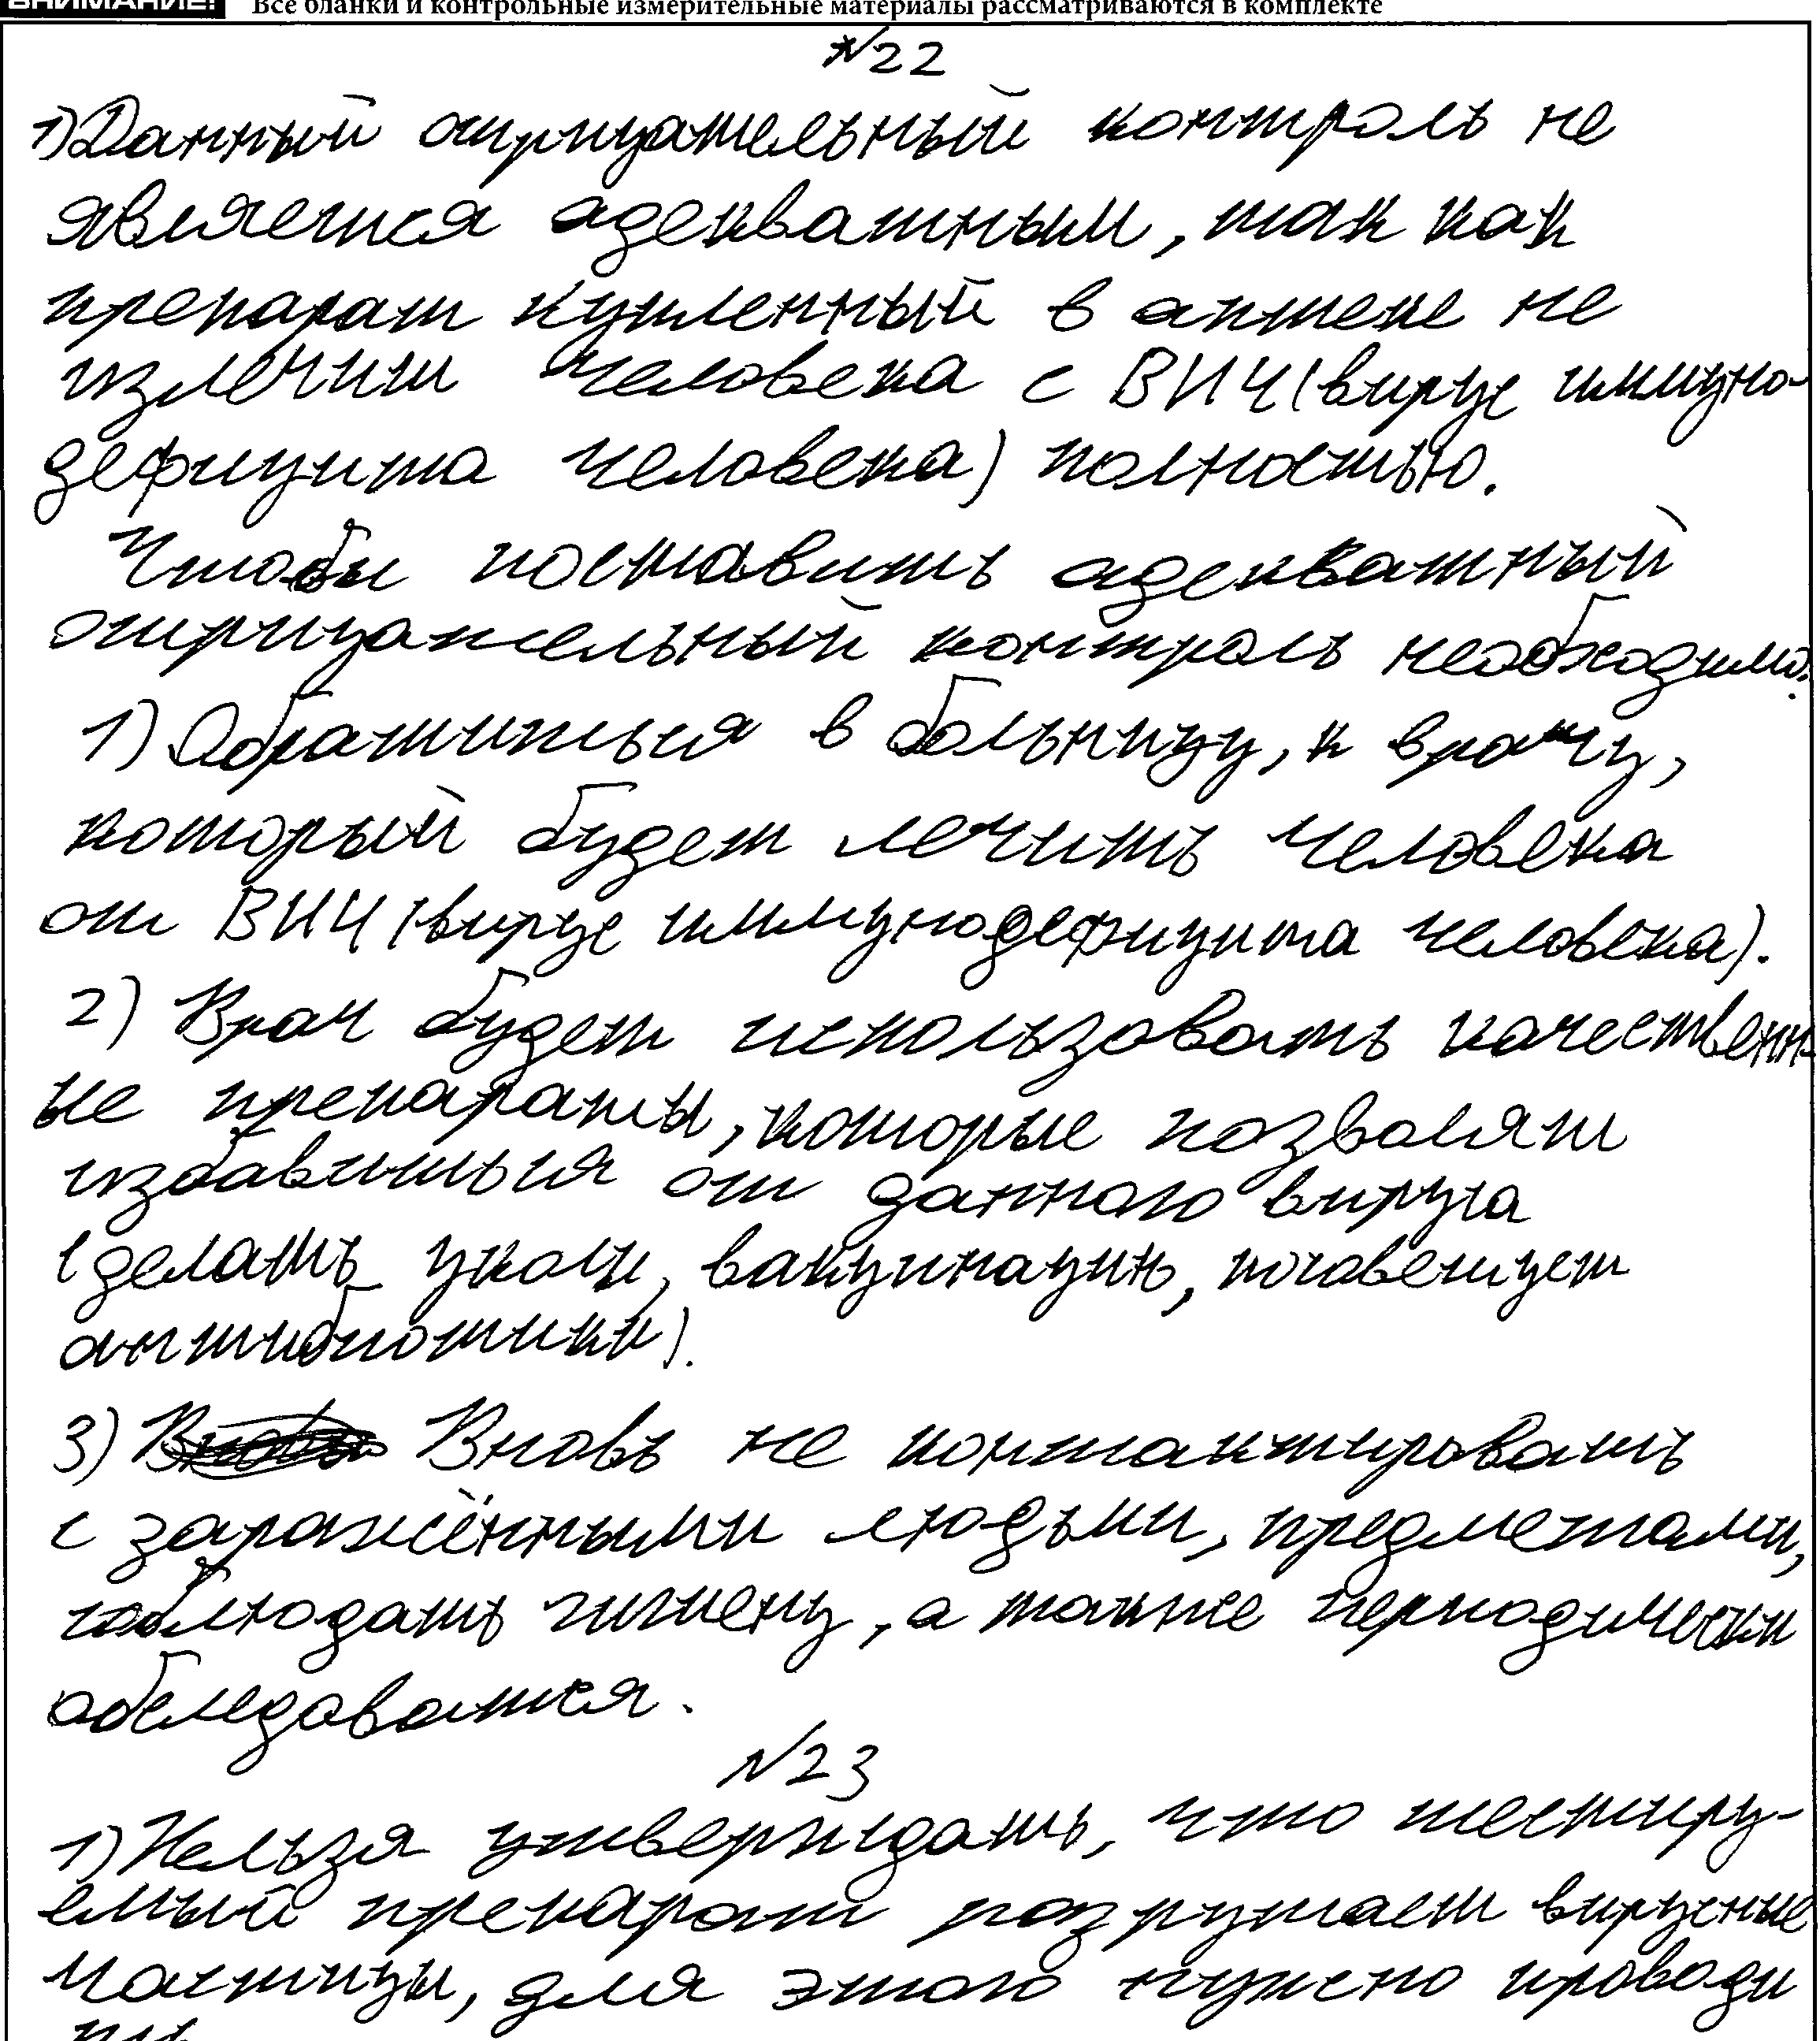 ВНИМАНИЕ! Все бланки и контрольные измерительные материалы рассматриваются в комплекте
№22
1) Данный отрицательный контроль не
является адекватным, так как
препарат купленный в аптеке не
излечит человека с ВИЧ (вирус иммуно-
дефицита человека) полностью.
Чтобы поставить адекватный
отрицательный контроль необходимо:
1) Обратиться в больницу, к врачу,
который будет лечить человека
от ВИЧ (вирус иммунодефицита человека).
2) Врач будет использовать качественн-
ые препараты, которые позволят
избавиться от данного вируса
(делать уколы, вакцинацию, посоветует
антибиотики).
3) Вновь не контактировать
с заражёнными людьми, предметами,
соблюдать гигиену, а также периодически
обследоваться.
№23
1) Нельзя утверждать, что тестиру-
емый препарат разрушает вирусные
частицы, для этого нужно проводи